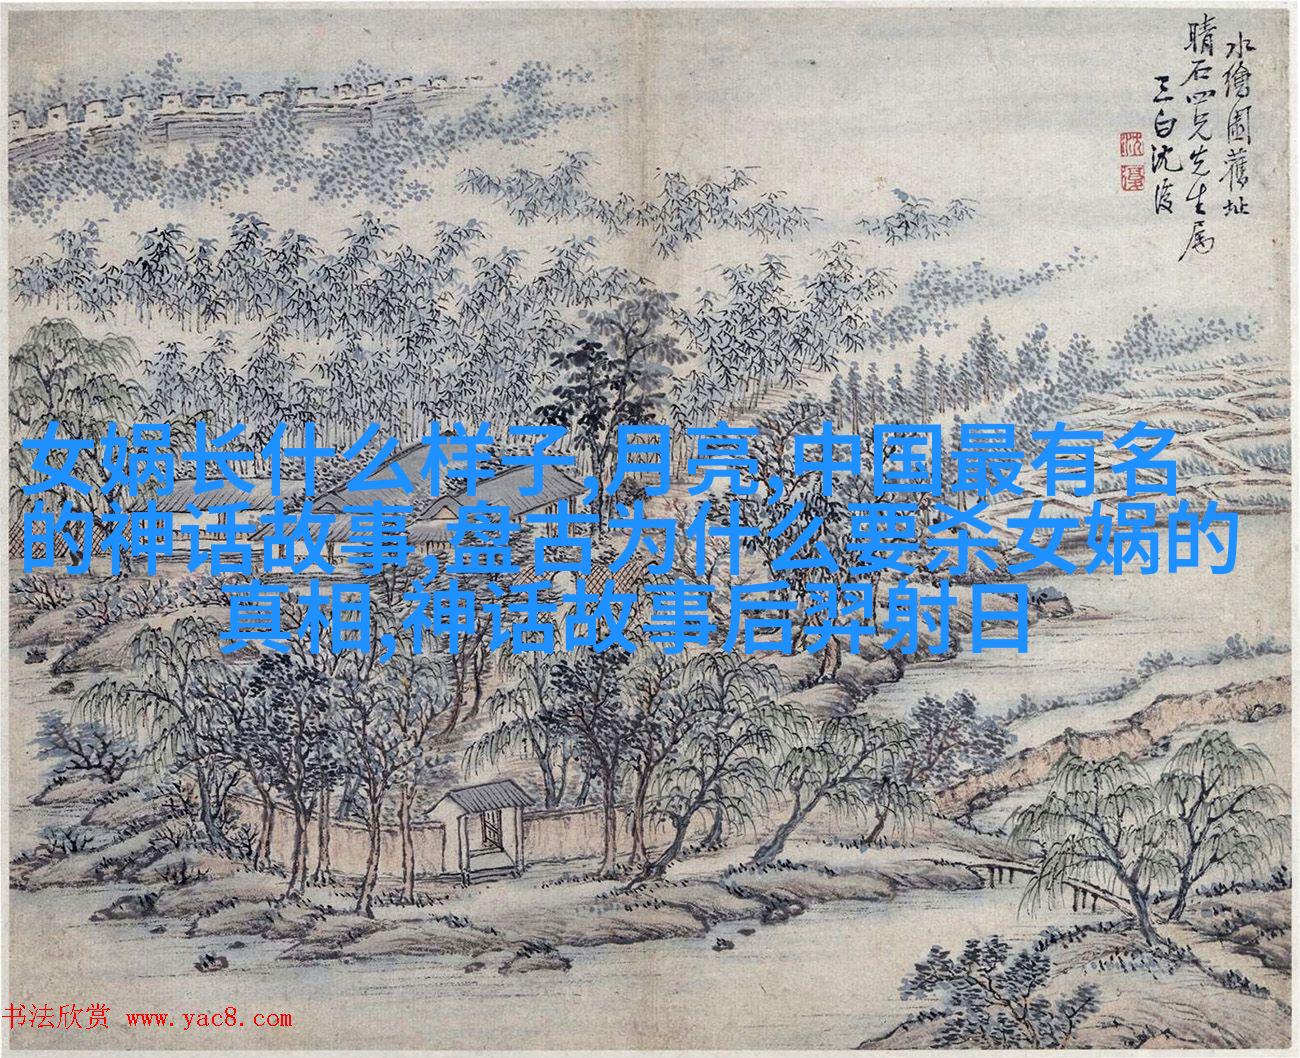 水繪園舊址
晴石四兄先生属
三白沈復
女娲长什么样子,月亮,中国最有名
的神话故事,盘古为什么要杀女娲的
真相,神话故事后羿射日
书法欣赏 www.yac8.com